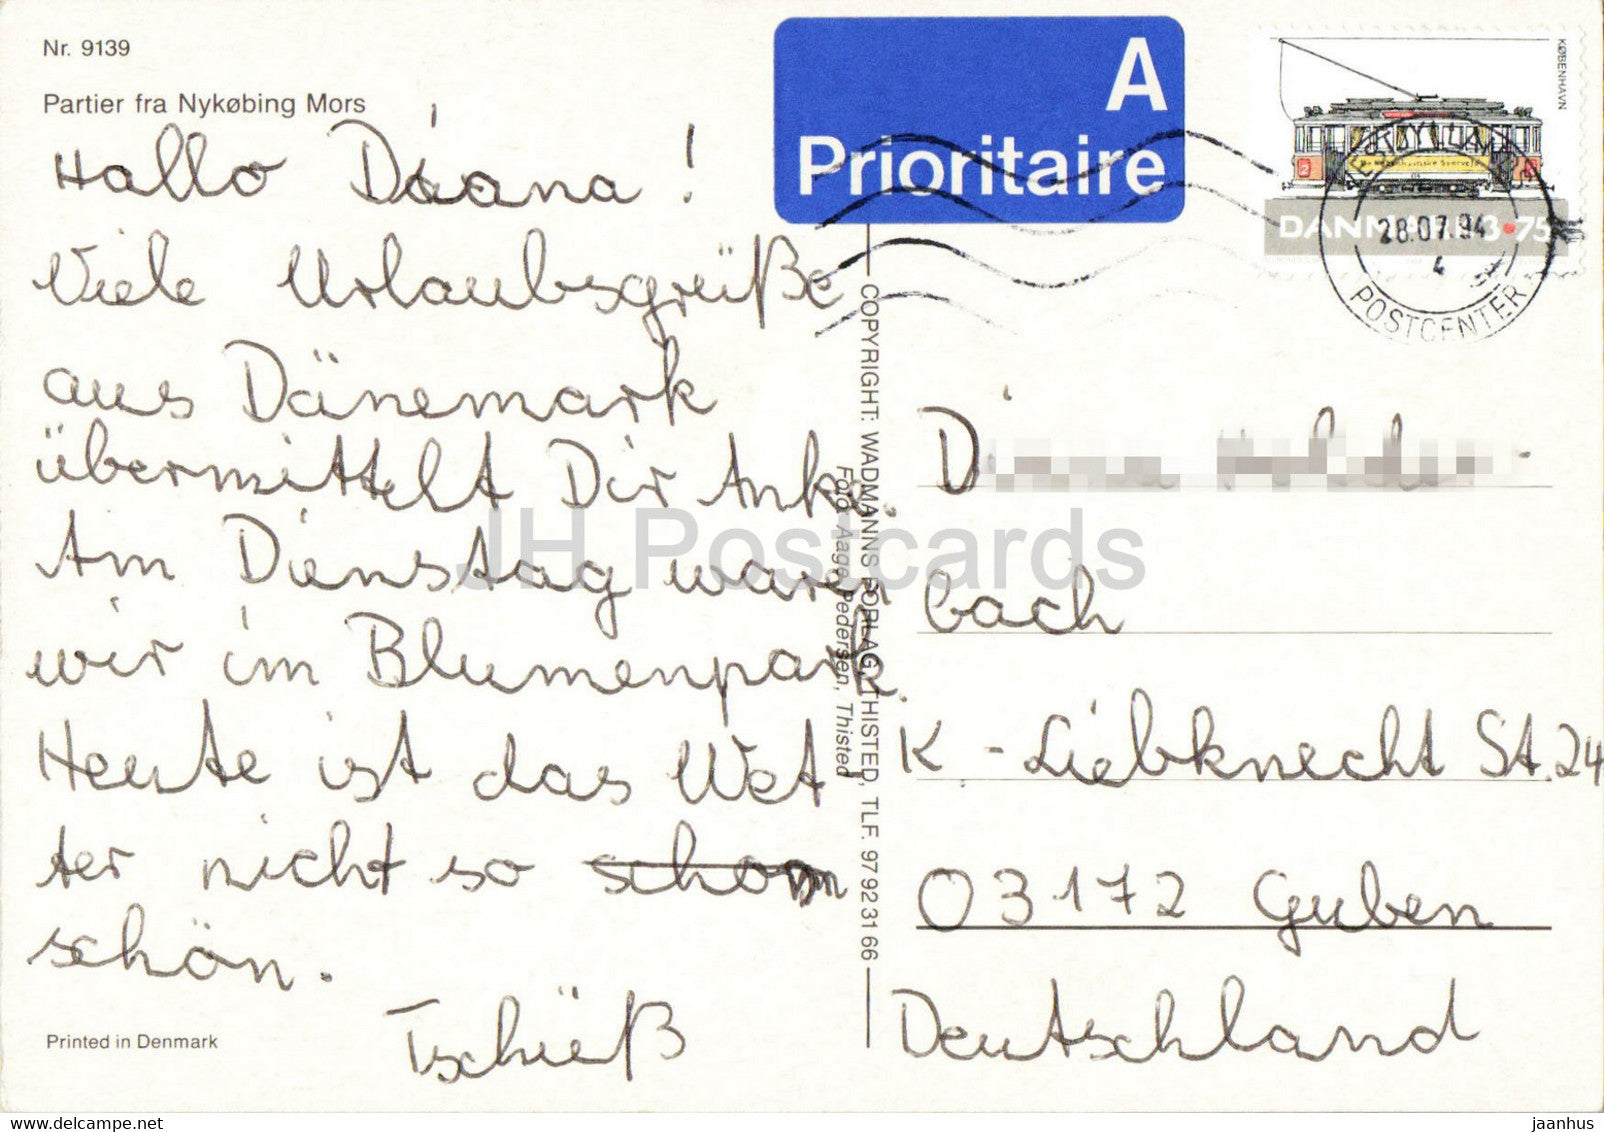 Nr. 9139
Partier fra Nykøbing Mors
Hallo Diana!
Viele Urlaubsgrüße
aus Dänemark
übermittelt Dir Anke.
Am Dienstag waren
wir im Blumenpark.
Heute ist das Wet
ter nicht so schon
schön.
Tschüß
Printed in Denmark
A
Prioritaire
KØBENHAVN
DANMARK 3.75
28.07.94
4
POSTCENTER
COPYRIGHT: WADMANNS FORLAG, THISTED, TLF. 97 92 31 66
Foto: Aage Pedersen, Thisted
bach
K-Liebknecht St. 24
03172 Guben
Deutschland
JH Postcards
delcampe.net
jaanhus